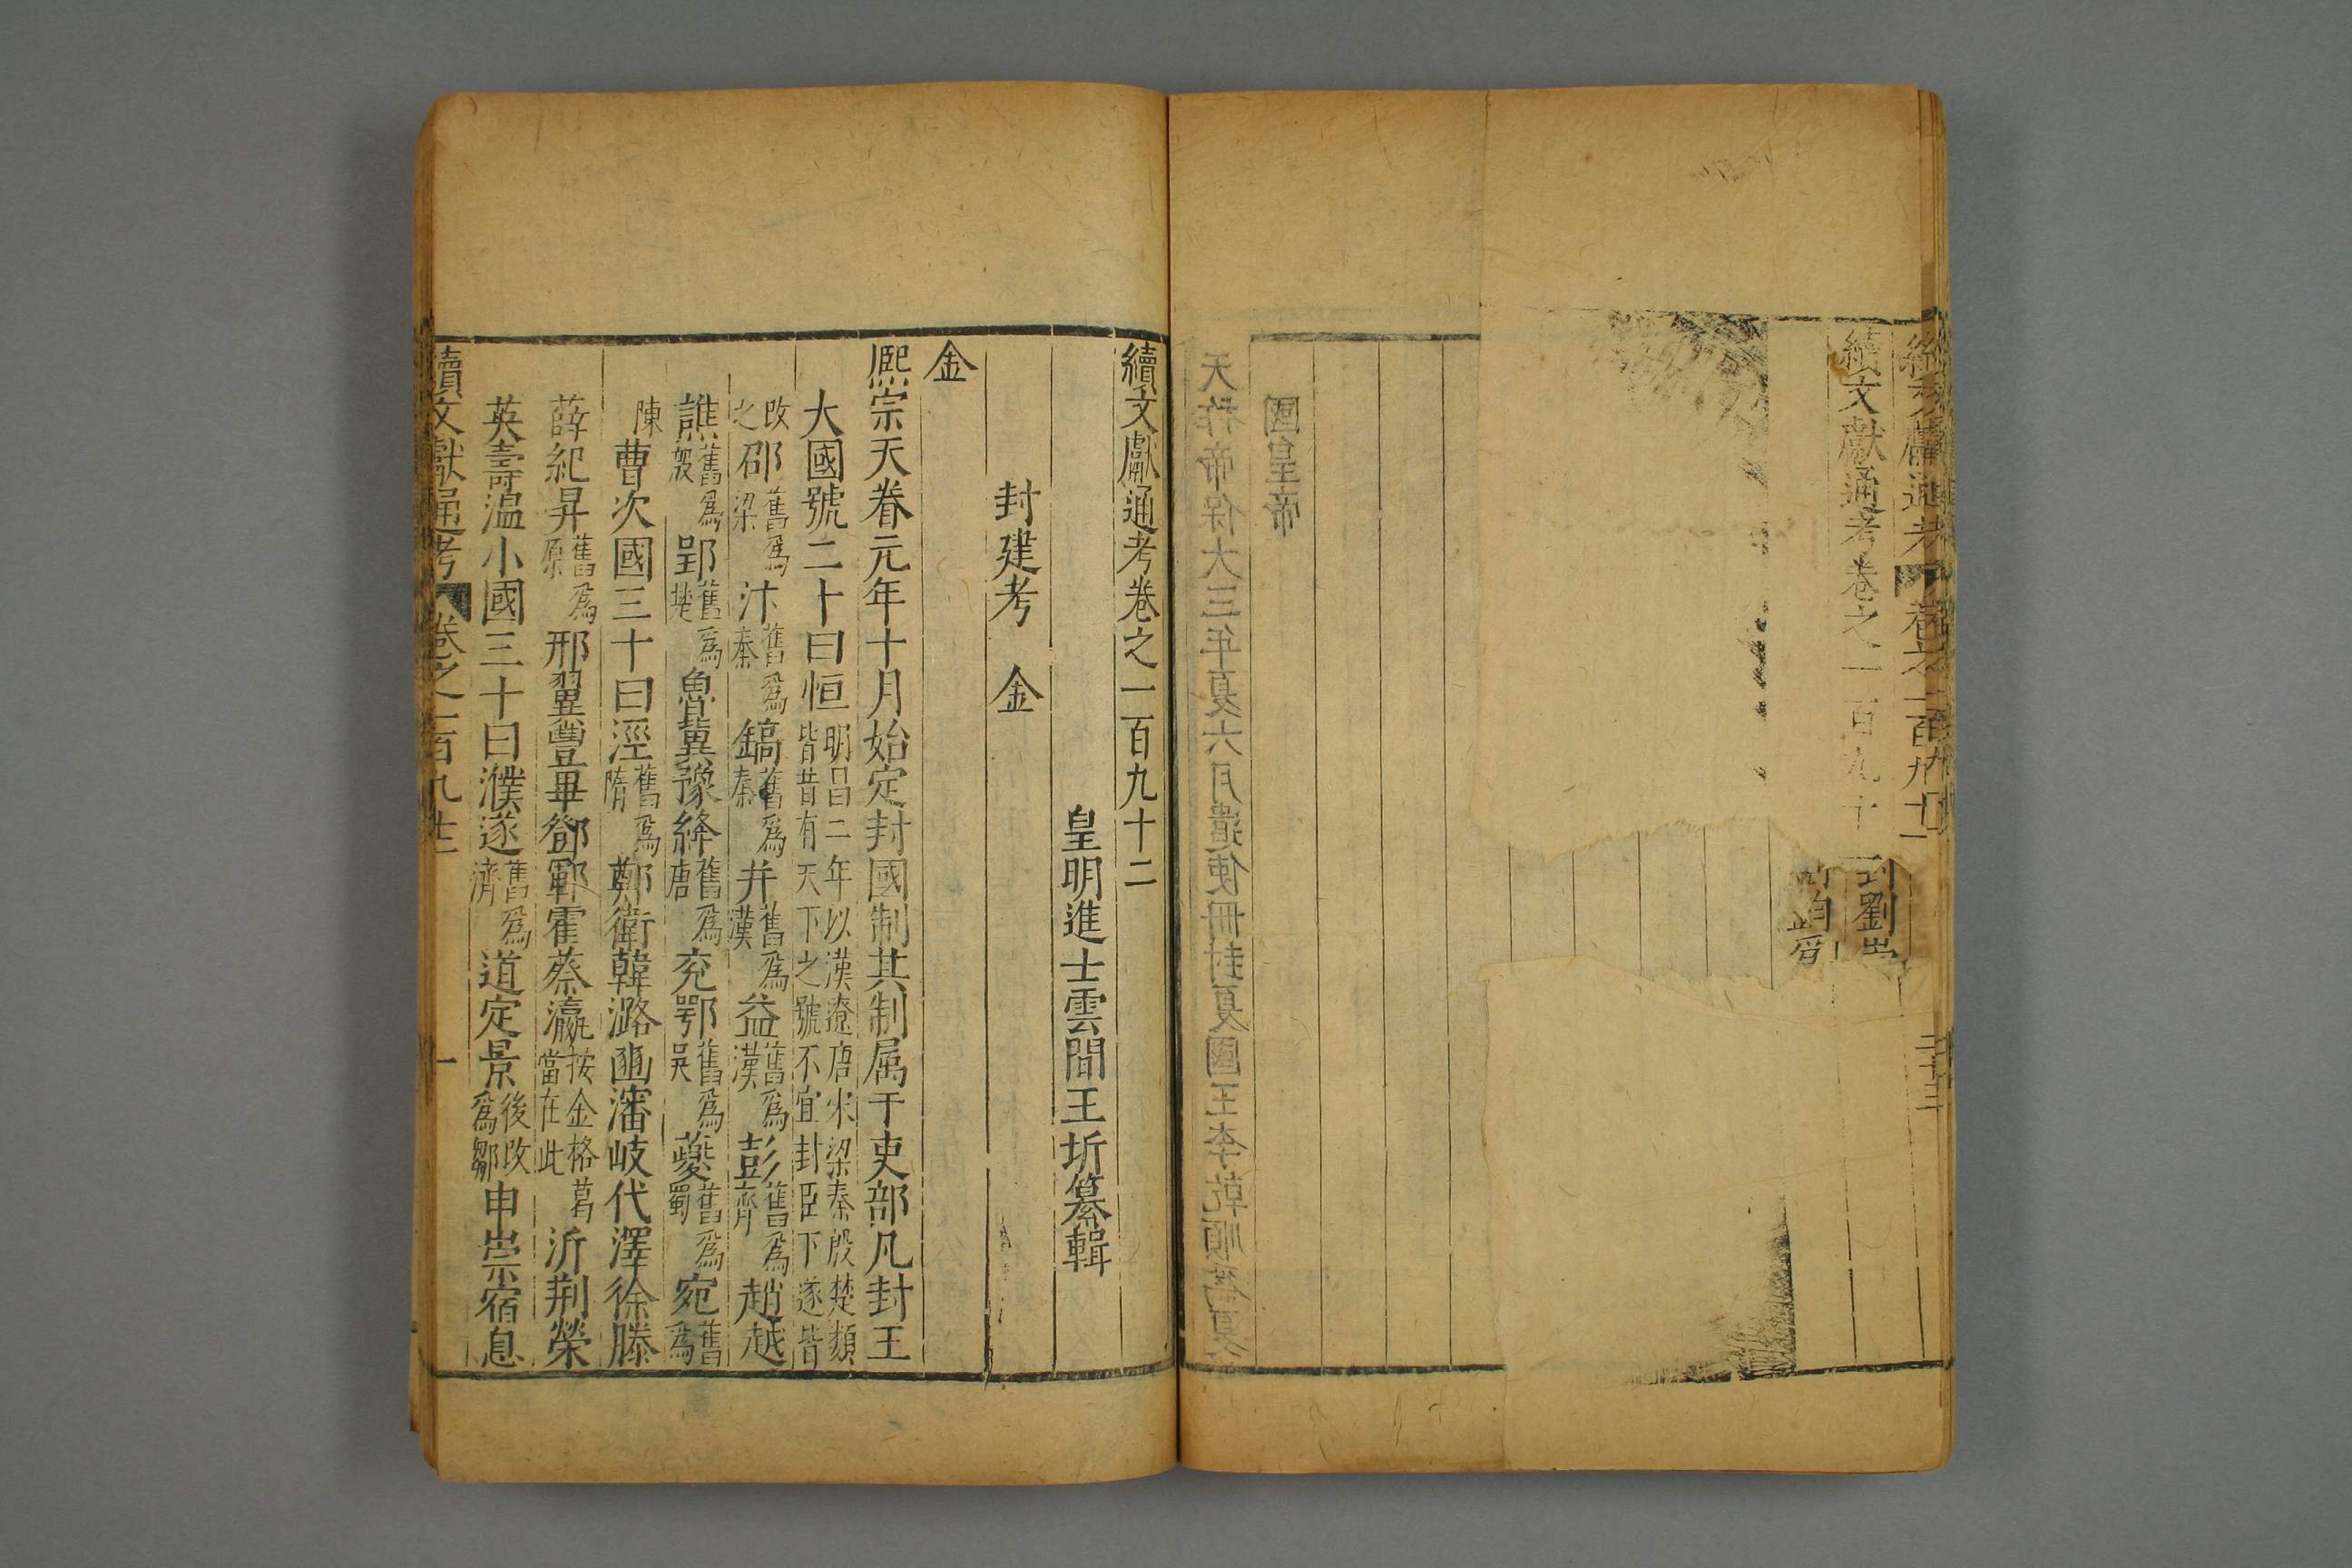 續文獻通考卷之一百九十一
劉
國皇帝
天祚帝保大三年夏六月遣使冊封夏國王李乾順爲夏
續文獻通考卷之一百九十二
皇明進士雲間王圻纂輯
封建考 金
金
熈宗天眷元年十月始定封國制其制属于吏部凡封王
大國號二十曰恒明昌二年以漢遼唐宋梁秦殷楚類皆昔有天下之號不宜封臣下遂皆
改之邵舊爲梁汴舊爲秦鎬舊爲秦并舊爲漢益舊爲漢彭舊爲齊趙越
譙舊爲殷郢舊爲楚魯冀豫絳舊爲唐兖鄂舊爲吳夔舊爲蜀宛舊爲
陳曹次國三十曰涇舊爲隋鄭衛韓潞豳瀋岐代澤徐滕
薛紀昇舊爲原邢翼豐畢鄧鄆霍蔡瀛按金格葛當在此沂荆榮
英壽温小國三十曰濮遂舊爲濟道定景後改爲鄒申崇宿息
續文獻通考 卷之一百九十二 一